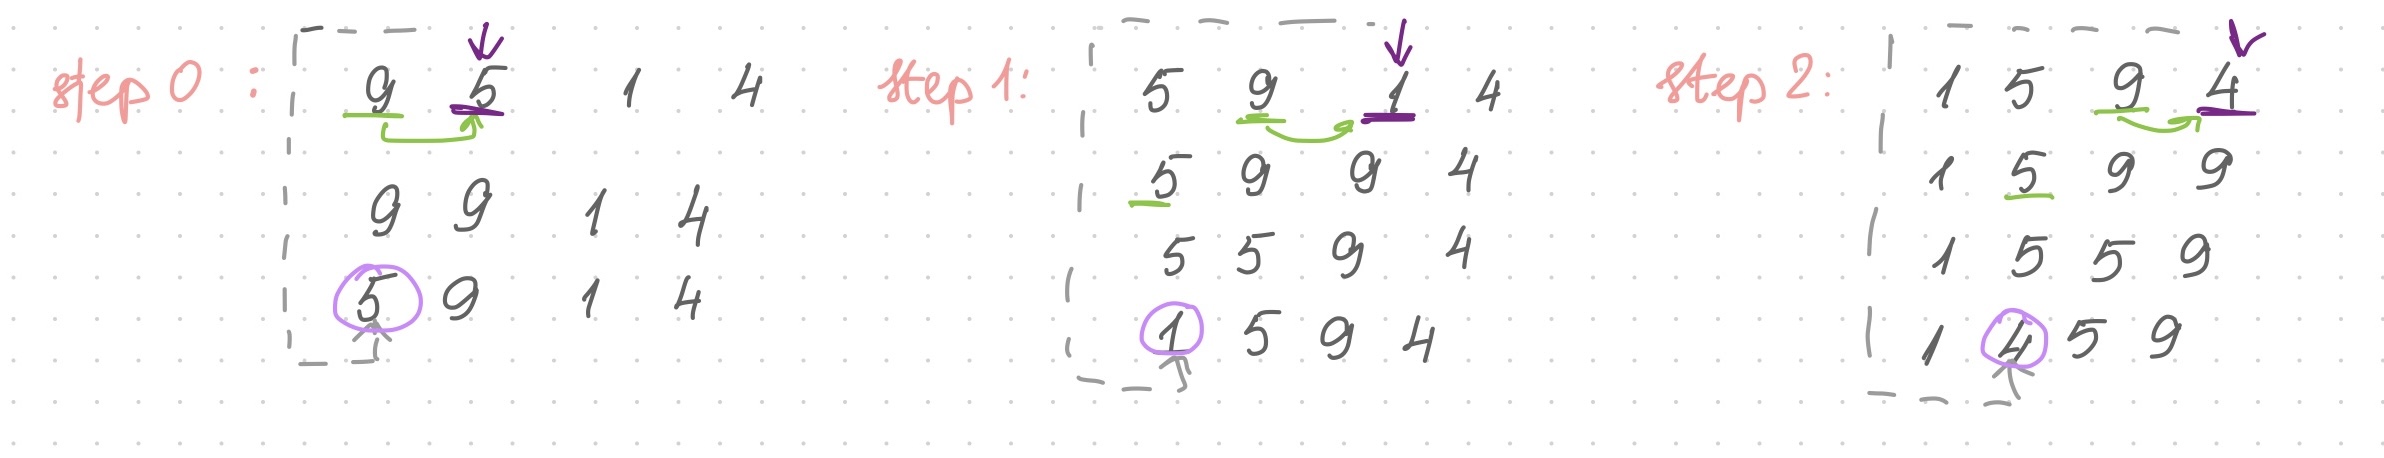 step 0 : 9 5 1 4
9 9 1 4
5 9 1 4
step 1: 5 9 1 4
5 9 9 4
5 5 9 4
1 5 9 4
step 2: 1 5 9 4
1 5 9 9
1 5 5 9
1 4 5 9